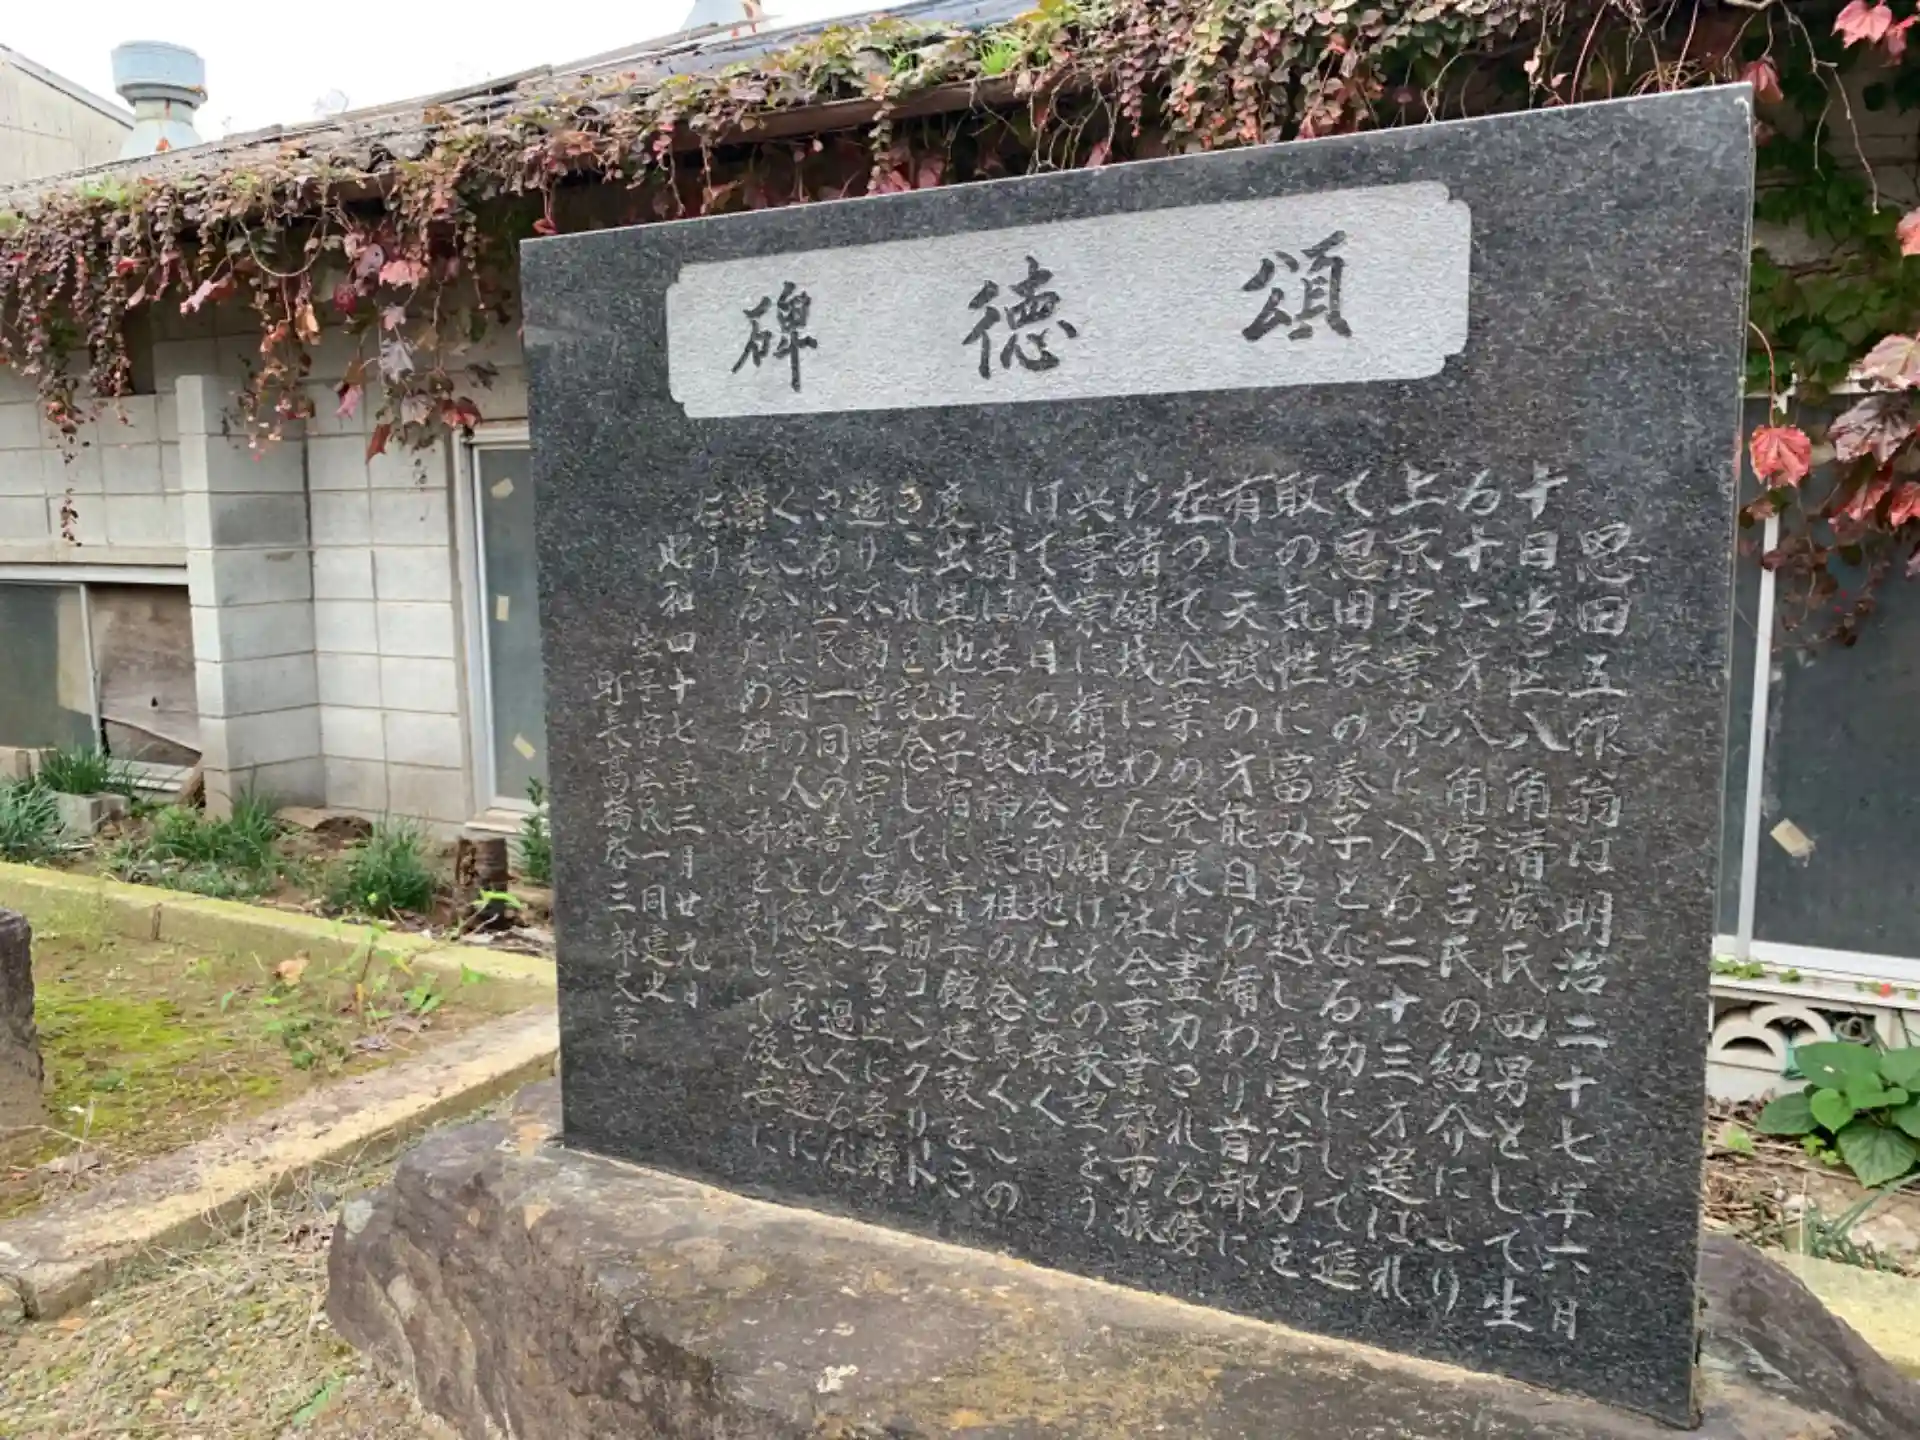 頌徳碑
恩田五 翁は明治二十七年六月
十日当区八角清蔵氏四男として生
る十六才八角寅吉氏の紹介により
上京実業界に入る二十三才選ばれ
て恩田家の養子となる幼にして進
取の気性に富み卓越した実行力を
有し天賦の才能自ら備わり首都に
在つて企業の発展に畫力される傍
ら諸領域にわたる社会事業都市振
興事業に精魂を傾けその衆望をう
けて今日の社会的地位を築く
翁は生来敬神崇祖の念篤くこの
度出生地生子宿に青年館建設をさ
きこれを記念して鉄筋コンクリート
造り不動尊堂宇を建立當区に寄贈
さる区民一同の喜び之に過ぐるな
くこゝに翁の人徳と を永遠に
讃えるため碑に を刻して後世に
石う
昭和四十七年三月廿九日
生子宿区民一同建之
町長高橋 三郎文筆